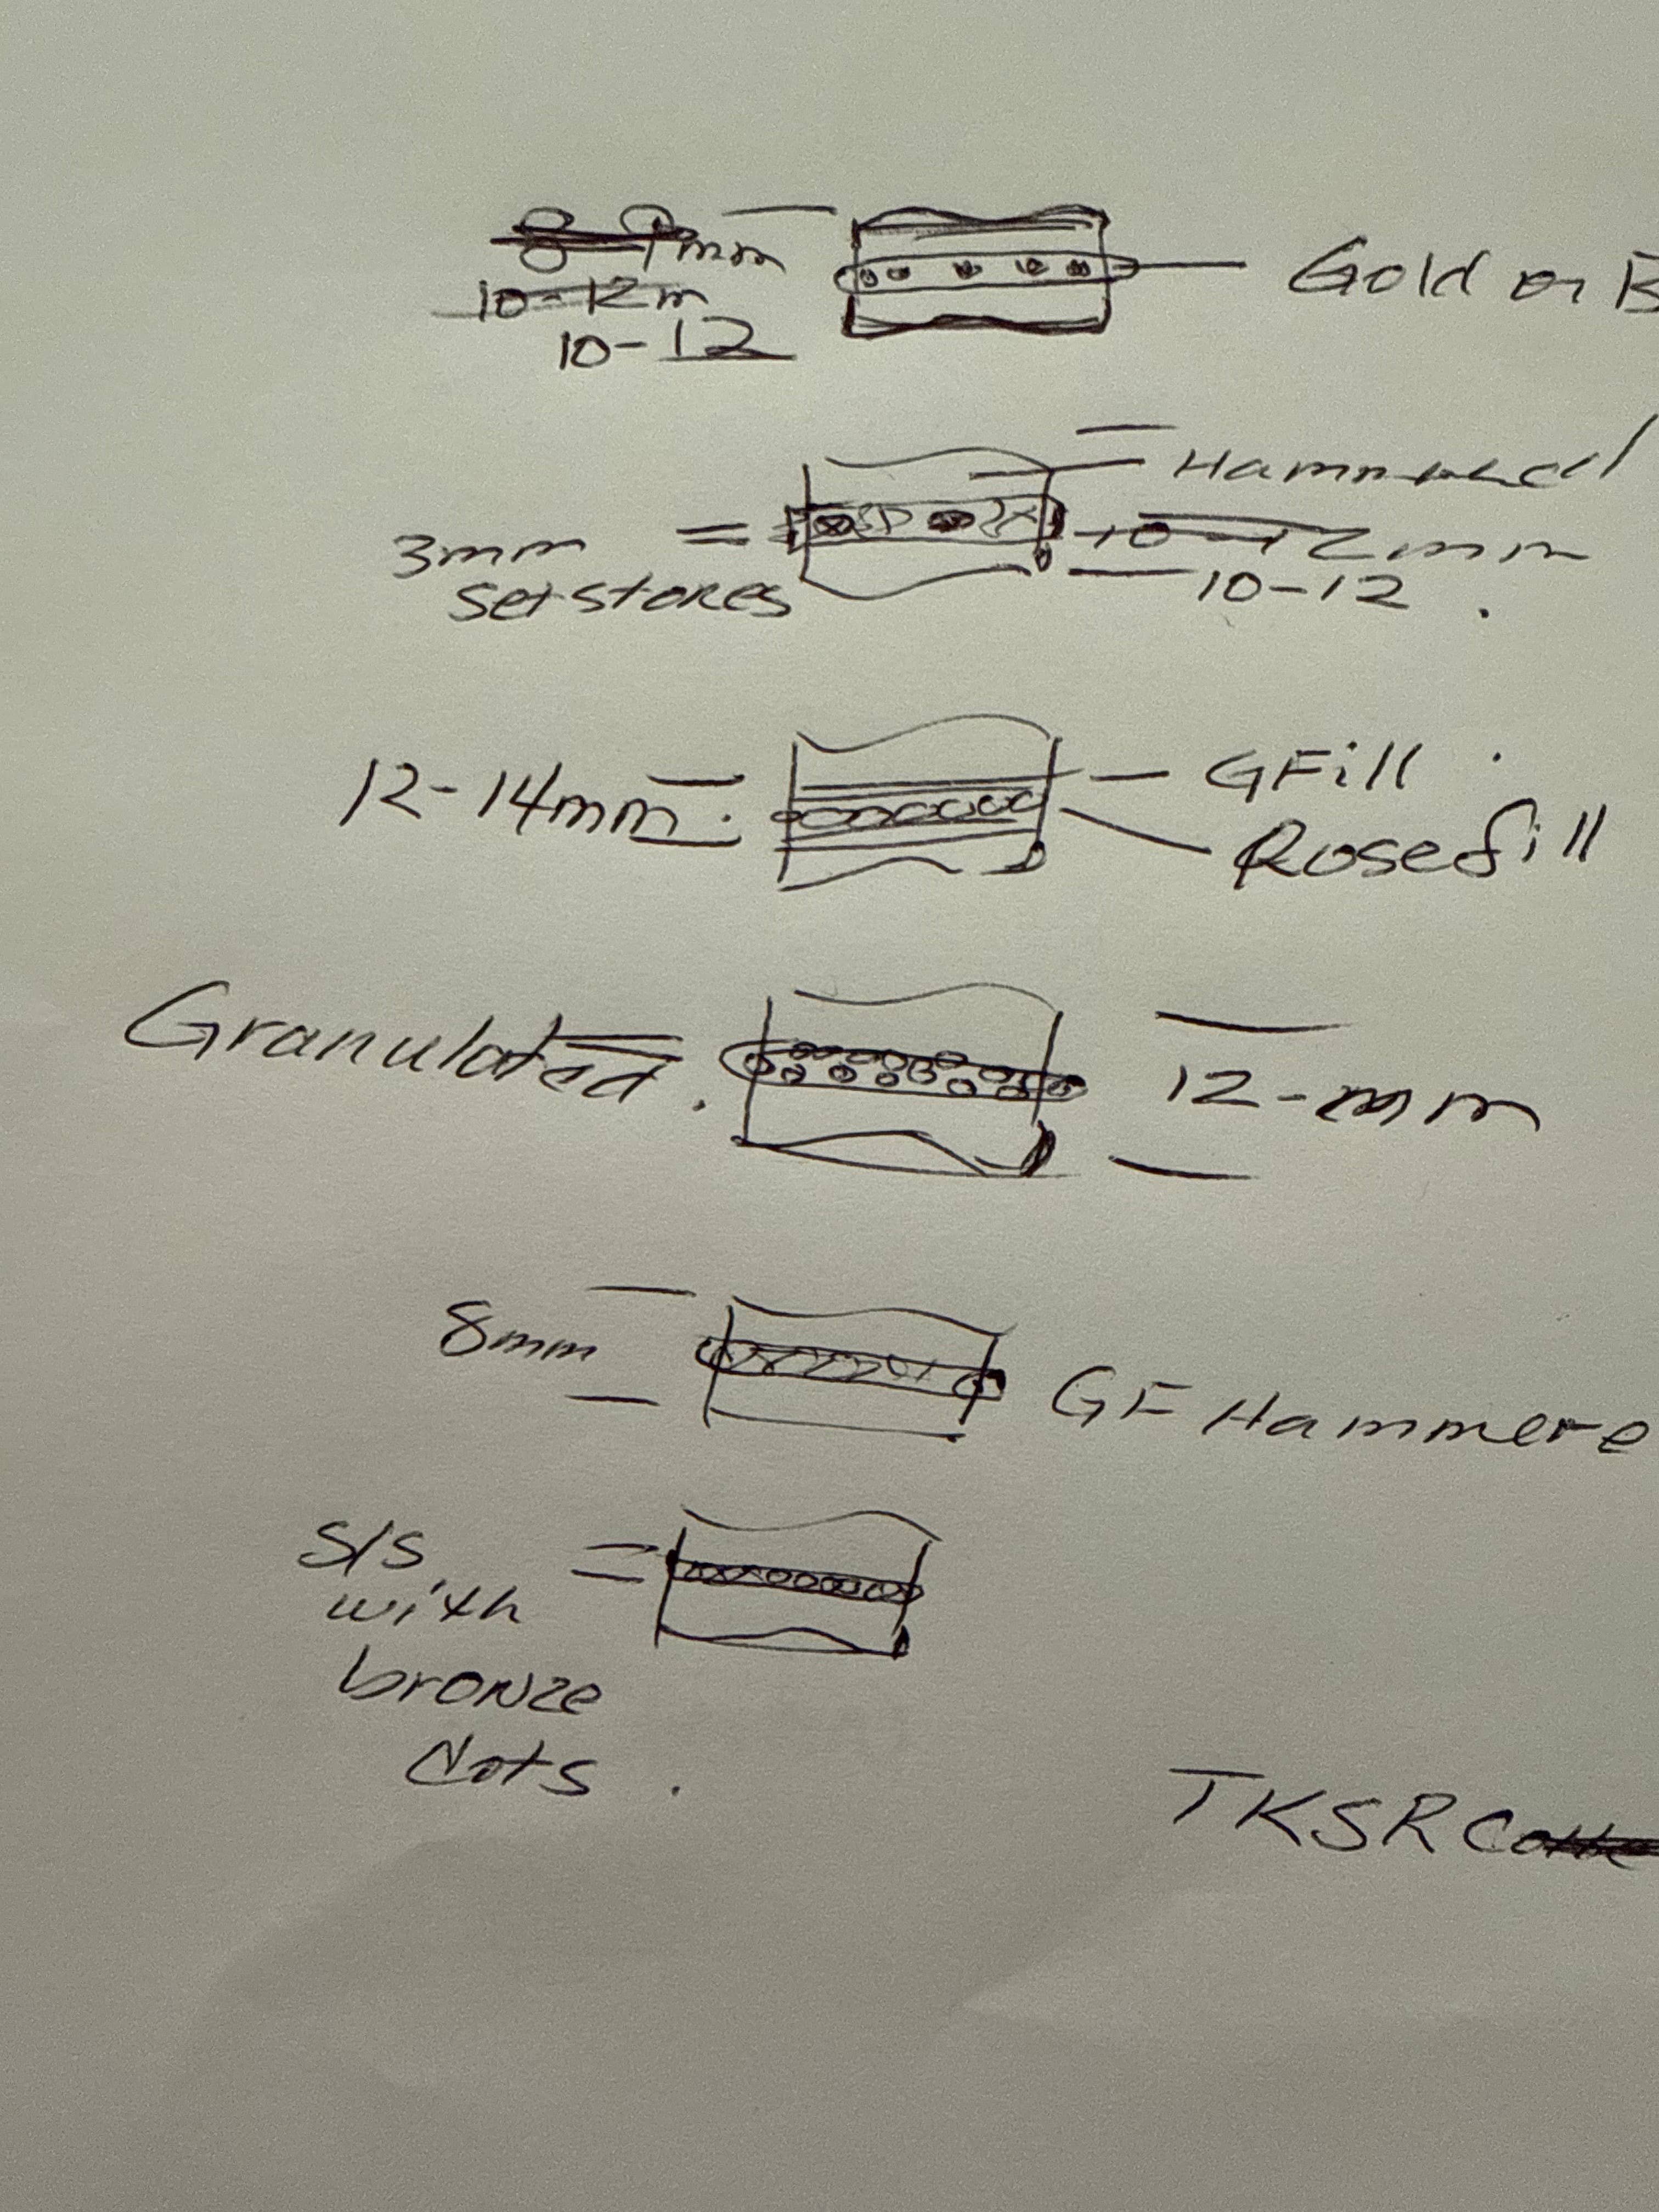 8-9mm
10-12m
10-12
Gold or B
Hammered
3mm
setstones
10-12mm
10-12.
12-14mm.
GFill
Rosefill
Granulated.
12-mm
8mm
GF Hammere
S/S
with
bronze
dots.
TKSR